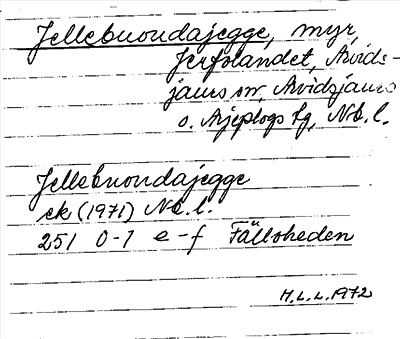 Jellebuondajegge, myr,
Jerfolandet, Arvids-
jaurs sn, Arvidsjaurs
o. Arjeplogs tg, Nb. l.
Jellebuondajegge
ek (1971) Nb. l.
251 0-1 e-f Fälloheden
H.L.L. 1972